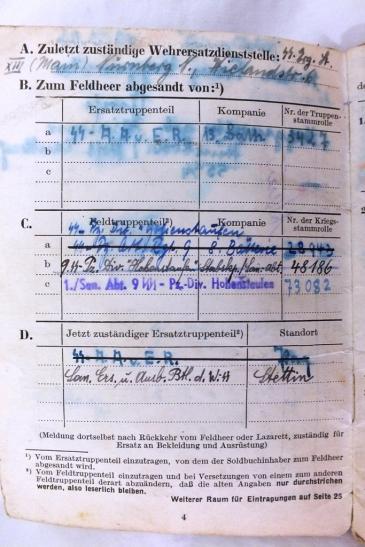 A. Zuletzt zuständige Wehrersatzdienststelle: SS-Erg. A.
XIII (Main) Nürnberg, Wielandstr. 6
B. Zum Feldheer abgesandt von:¹)
Ersatztruppenteil Kompanie Nr. der Truppenstammrolle
a SS-A.A.u.E.R. 13. Batt. 3427
b
c
C. Feldtruppenteil²) Kompanie Nr. der Kriegsstammrolle
SS-Pz. Div. "Hohenstaufen"
a SS-Pz. Art. Rgt. 9 8. Batterie
b 9. SS-Pz.-Div. "Hohenstaufen" Stabskp./San.-Abt. 48186
c 1./San. Abt. 9 SS-Pz.-Div. Hohenstaufen 73082
D. Jetzt zuständiger Ersatztruppenteil²) Standort
SS-A.A.u.E.R. Prag
San. Ers. u. Ausb. Btl. d. W-SS Stettin
(Meldung dortselbst nach Rückkehr vom Feldheer oder Lazarett, zuständig für
Ersatz an Bekleidung und Ausrüstung)
¹) Vom Ersatztruppenteil einzutragen, von dem der Soldbuchinhaber zum Feldheer
abgesandt wird.
²) Vom Feldtruppenteil einzutragen und bei Versetzungen von einem zum anderen
Feldtruppenteil derart abzuändern, daß die alten Angaben nur durchstrichen
werden, also leserlich bleiben.
Weiterer Raum für Eintragungen auf Seite 25
4